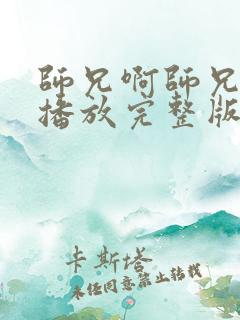 師兄啊師兄
播放完整版
卡斯塔
未经同意禁止转载